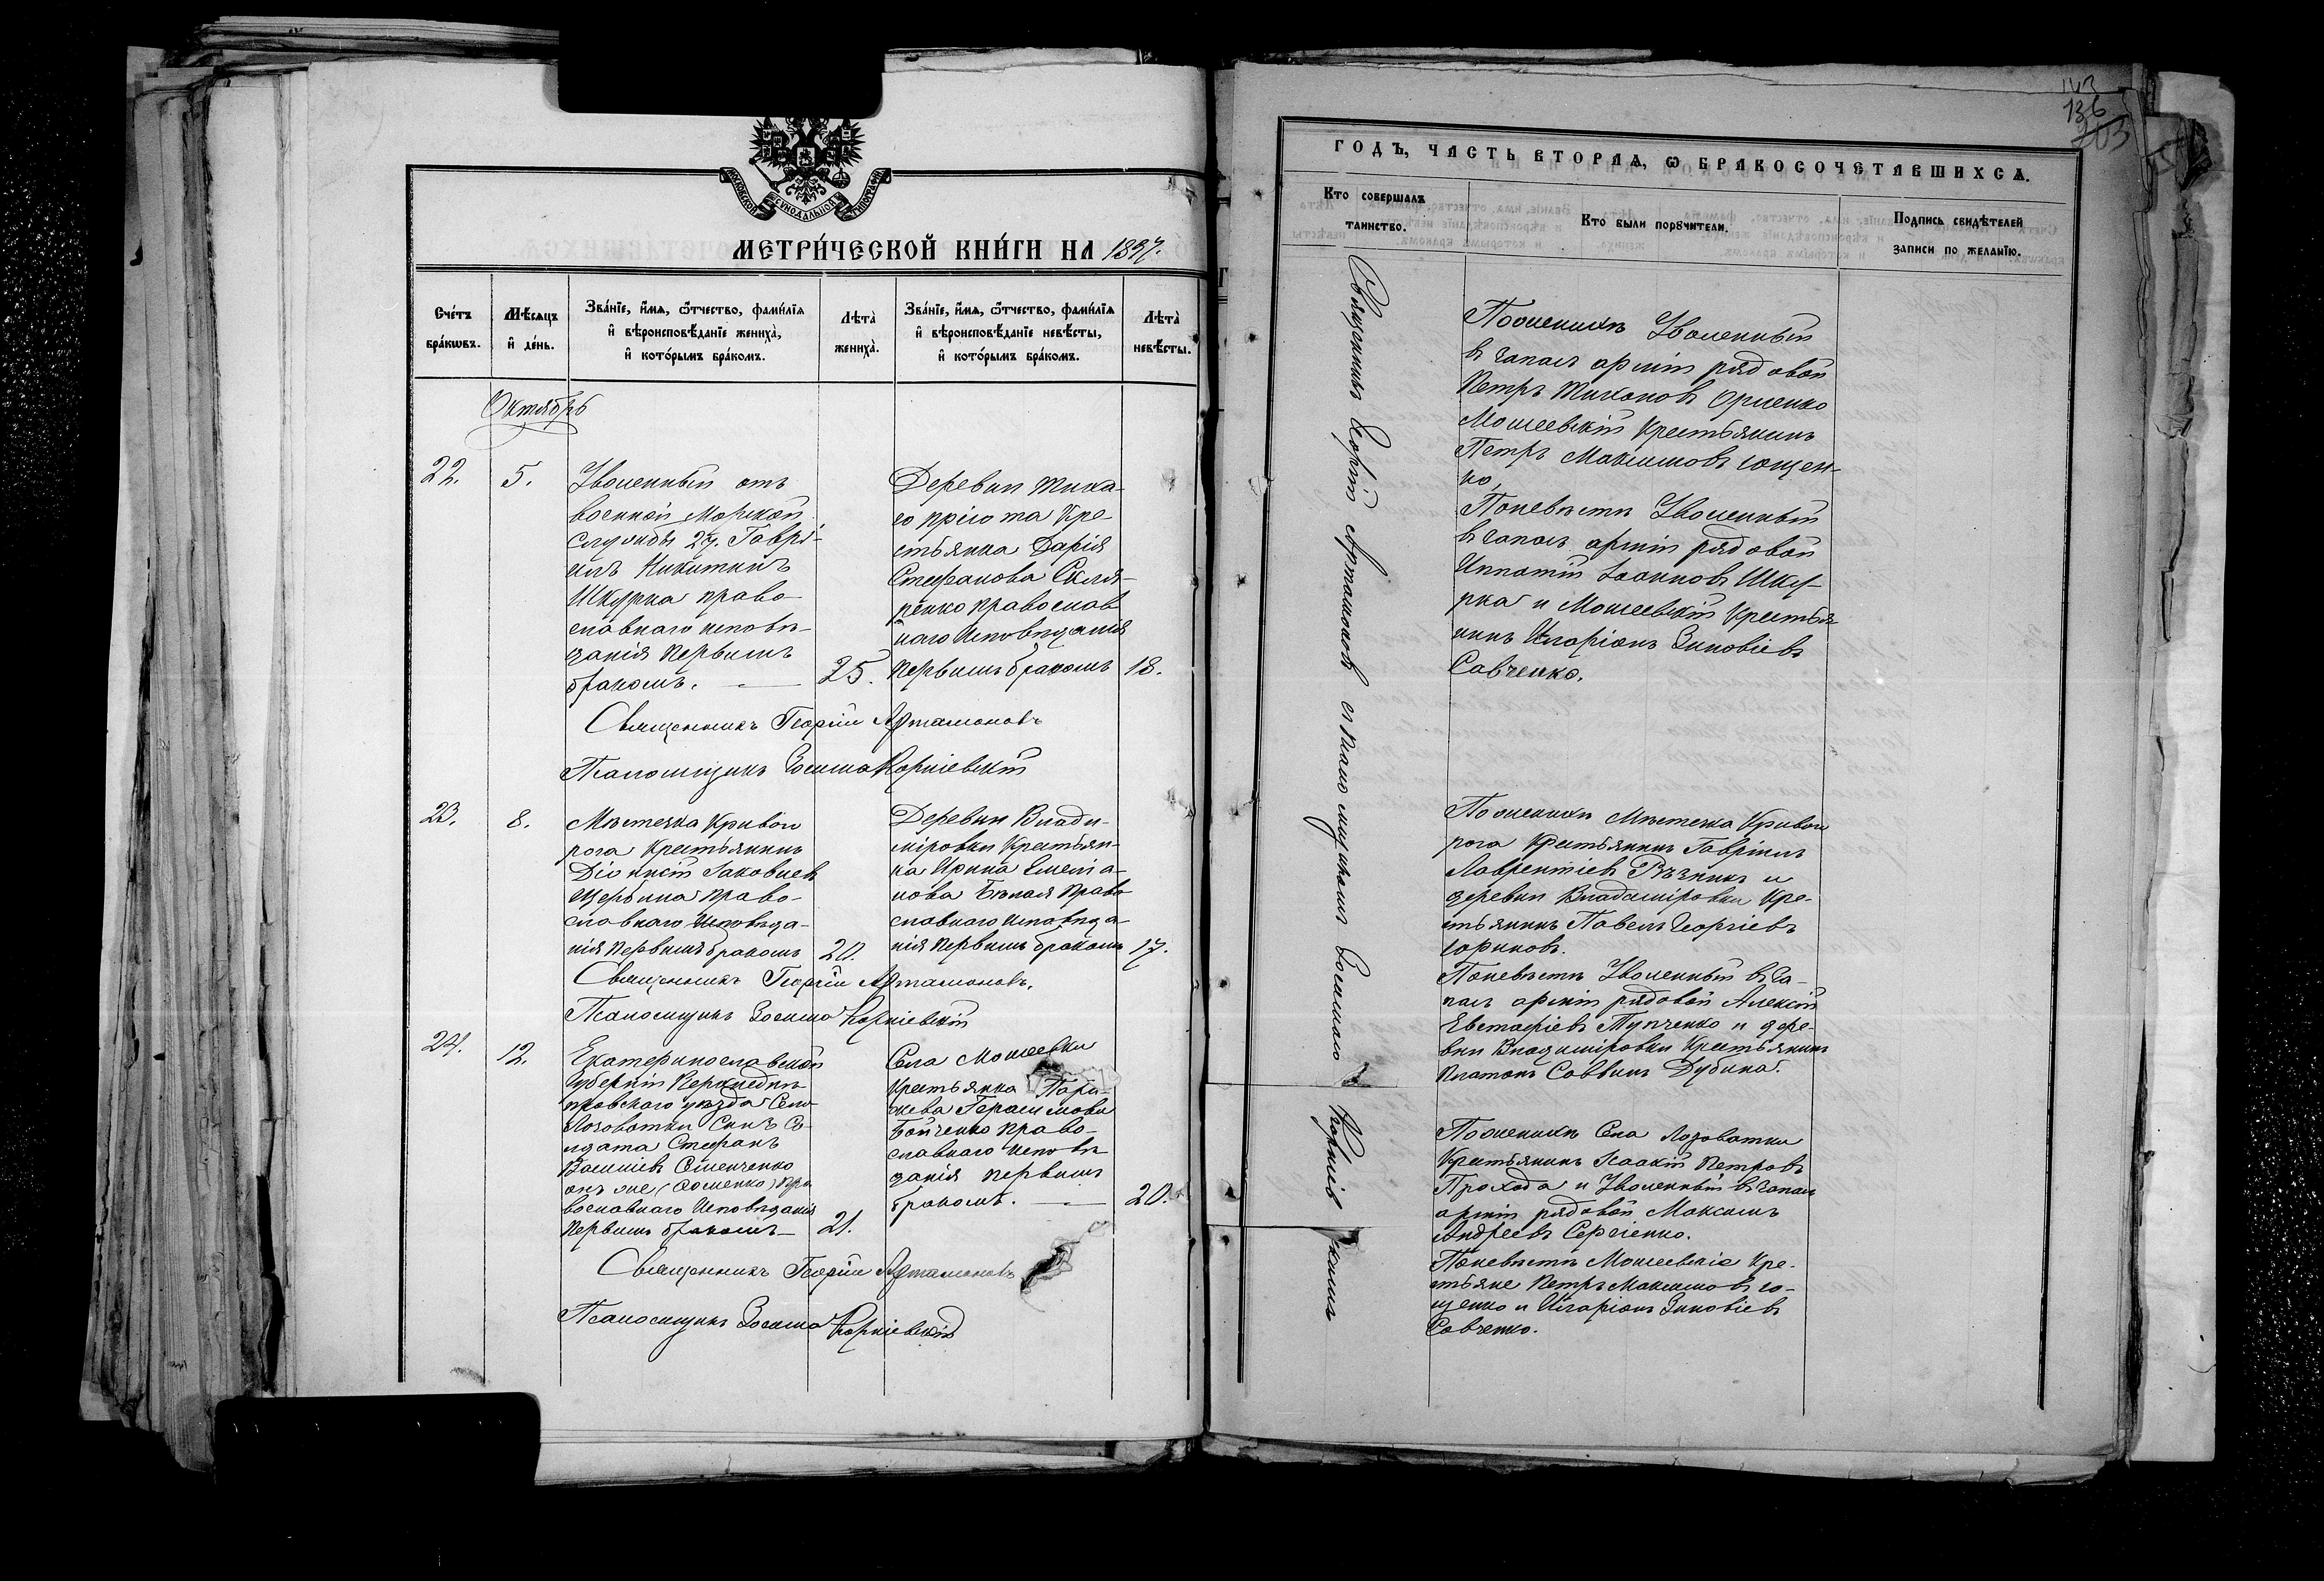 МОСКОВСКОЙ СѴНОДАЛЬНОЙ ТИПОГРАФІИ
МЕТРИ́ЧЕСКОЙ КНИ́ГИ НА 1897.
Сче́тъ бра́кωвъ.
Мѣсяцъ и҆ де́нь.
Зва́нїе, и҆́мѧ, ѻ҆́тчество, фами́лїѧ и҆ вѣроисповѣ́данїе жениха̀, и҆ кото́рымъ бра́комъ.
Лѣта̀ жениха̀.
Зва́нїе, и҆́мѧ, ѻ҆́тчество, фами́лїѧ и҆ вѣроисповѣ́данїе невѣ́сты, и҆ кото́рымъ бра́комъ.
Лѣта̀ невѣ́сты.
Октябрь
22.
5.
Уволенный отъ
военной Морской
службы 2й. Гаврі-
илъ Никитинъ
Шкурка право-
славнаго исповѣ-
данія первымъ
бракомъ.
25.
Деревни Тиха-
го пріюта Кре-
стьянка Дарія
Стефанова Скля-
ренко православ
наго Исповѣданія
первымъ бракомъ
18.
Священникъ Георгій Артамоновъ
Псаломщикъ Зосима Корніевскій
23.
8.
Мѣстечка Кривого
рога Крестьянинъ
Діонисій Іаковлев
Щербина право-
славнаго Исповѣда-
нія первымъ бракомъ
20.
Деревни Влади-
міровки Крестьян-
ка Ирина Емелі а-
нова Бѣлая право
славнаго исповѣда-
нія первымъ бракомъ
17.
Священникъ Георгій Артамоновъ.
Псаломщикъ Зосима Корніевскій
24.
12.
Екатеринославской
Губерніи Верхнеднѣ-
провскаго уѣзда Села
Лозоватки Сынъ Со-
лдата Стефанъ
Василіев
онъ же (Фоменко) пра
вославнаго Исповѣданія
первымъ бракомъ
21.
Села Мошеевки
Крестьянка Пара-
скева Герасимова
Бойченко право-
славнаго исповѣ
данія первымъ
бракомъ.
20.
Священникъ Георгій Артамоновъ
Псаломщикъ Зосима Корніевскій
136
203
ГОДЪ, ЧАСТЬ ВТОРАѦ, Ѡ БРАКОСОЧЕТАВШИХСѦ.
Кто совершалъ таинство.
Кто были порꙋчители.
Подпись свидѣтелей записи по желанїю.
Священникъ Георгій Артамоновъ съ псаломщикомъ Зосимою Корніевскимъ
По женихѣ Уволенный
въ запасъ арміи рядовой
Петръ Тихоновъ
Мошеевскій Крестьянинъ
Петръ Максимовъ Ющен-
ко,
По невѣстѣ Уволенный
въ запасъ арміи рядовой
Ипполитъ Іоанновъ Шку-
рка и Мошеевскій Крестья
нинъ Иларіонъ Зиновіевъ
Савченко.
По женихѣ Мѣстечка Кривого
рога Крестьянинъ Гавріилъ
Лаврентіев Рѣзникъ и
деревни Владиміровки Кре-
стьянинъ Павелъ Георгіевъ
Юриковъ.
По невѣстѣ Уволенный въ за-
пасъ арміи рядовой Алексій
Евстафіевъ Тупченко и дере-
вни Владиміровки Крестьянинъ
Платонъ Саввинъ Дубина.
По женихѣ Села Лозоватки
Крестьянинъ Исаакій Петровъ
Прохода и Уволенный въ запасъ
арміи рядовой Максимъ
Андреевъ Сергіенко.
По невѣстѣ Мошеевскіе Кре-
стьяне Петръ Максимовъ Ю-
щенко и Иларіонъ Зиновіевъ
Савченко.